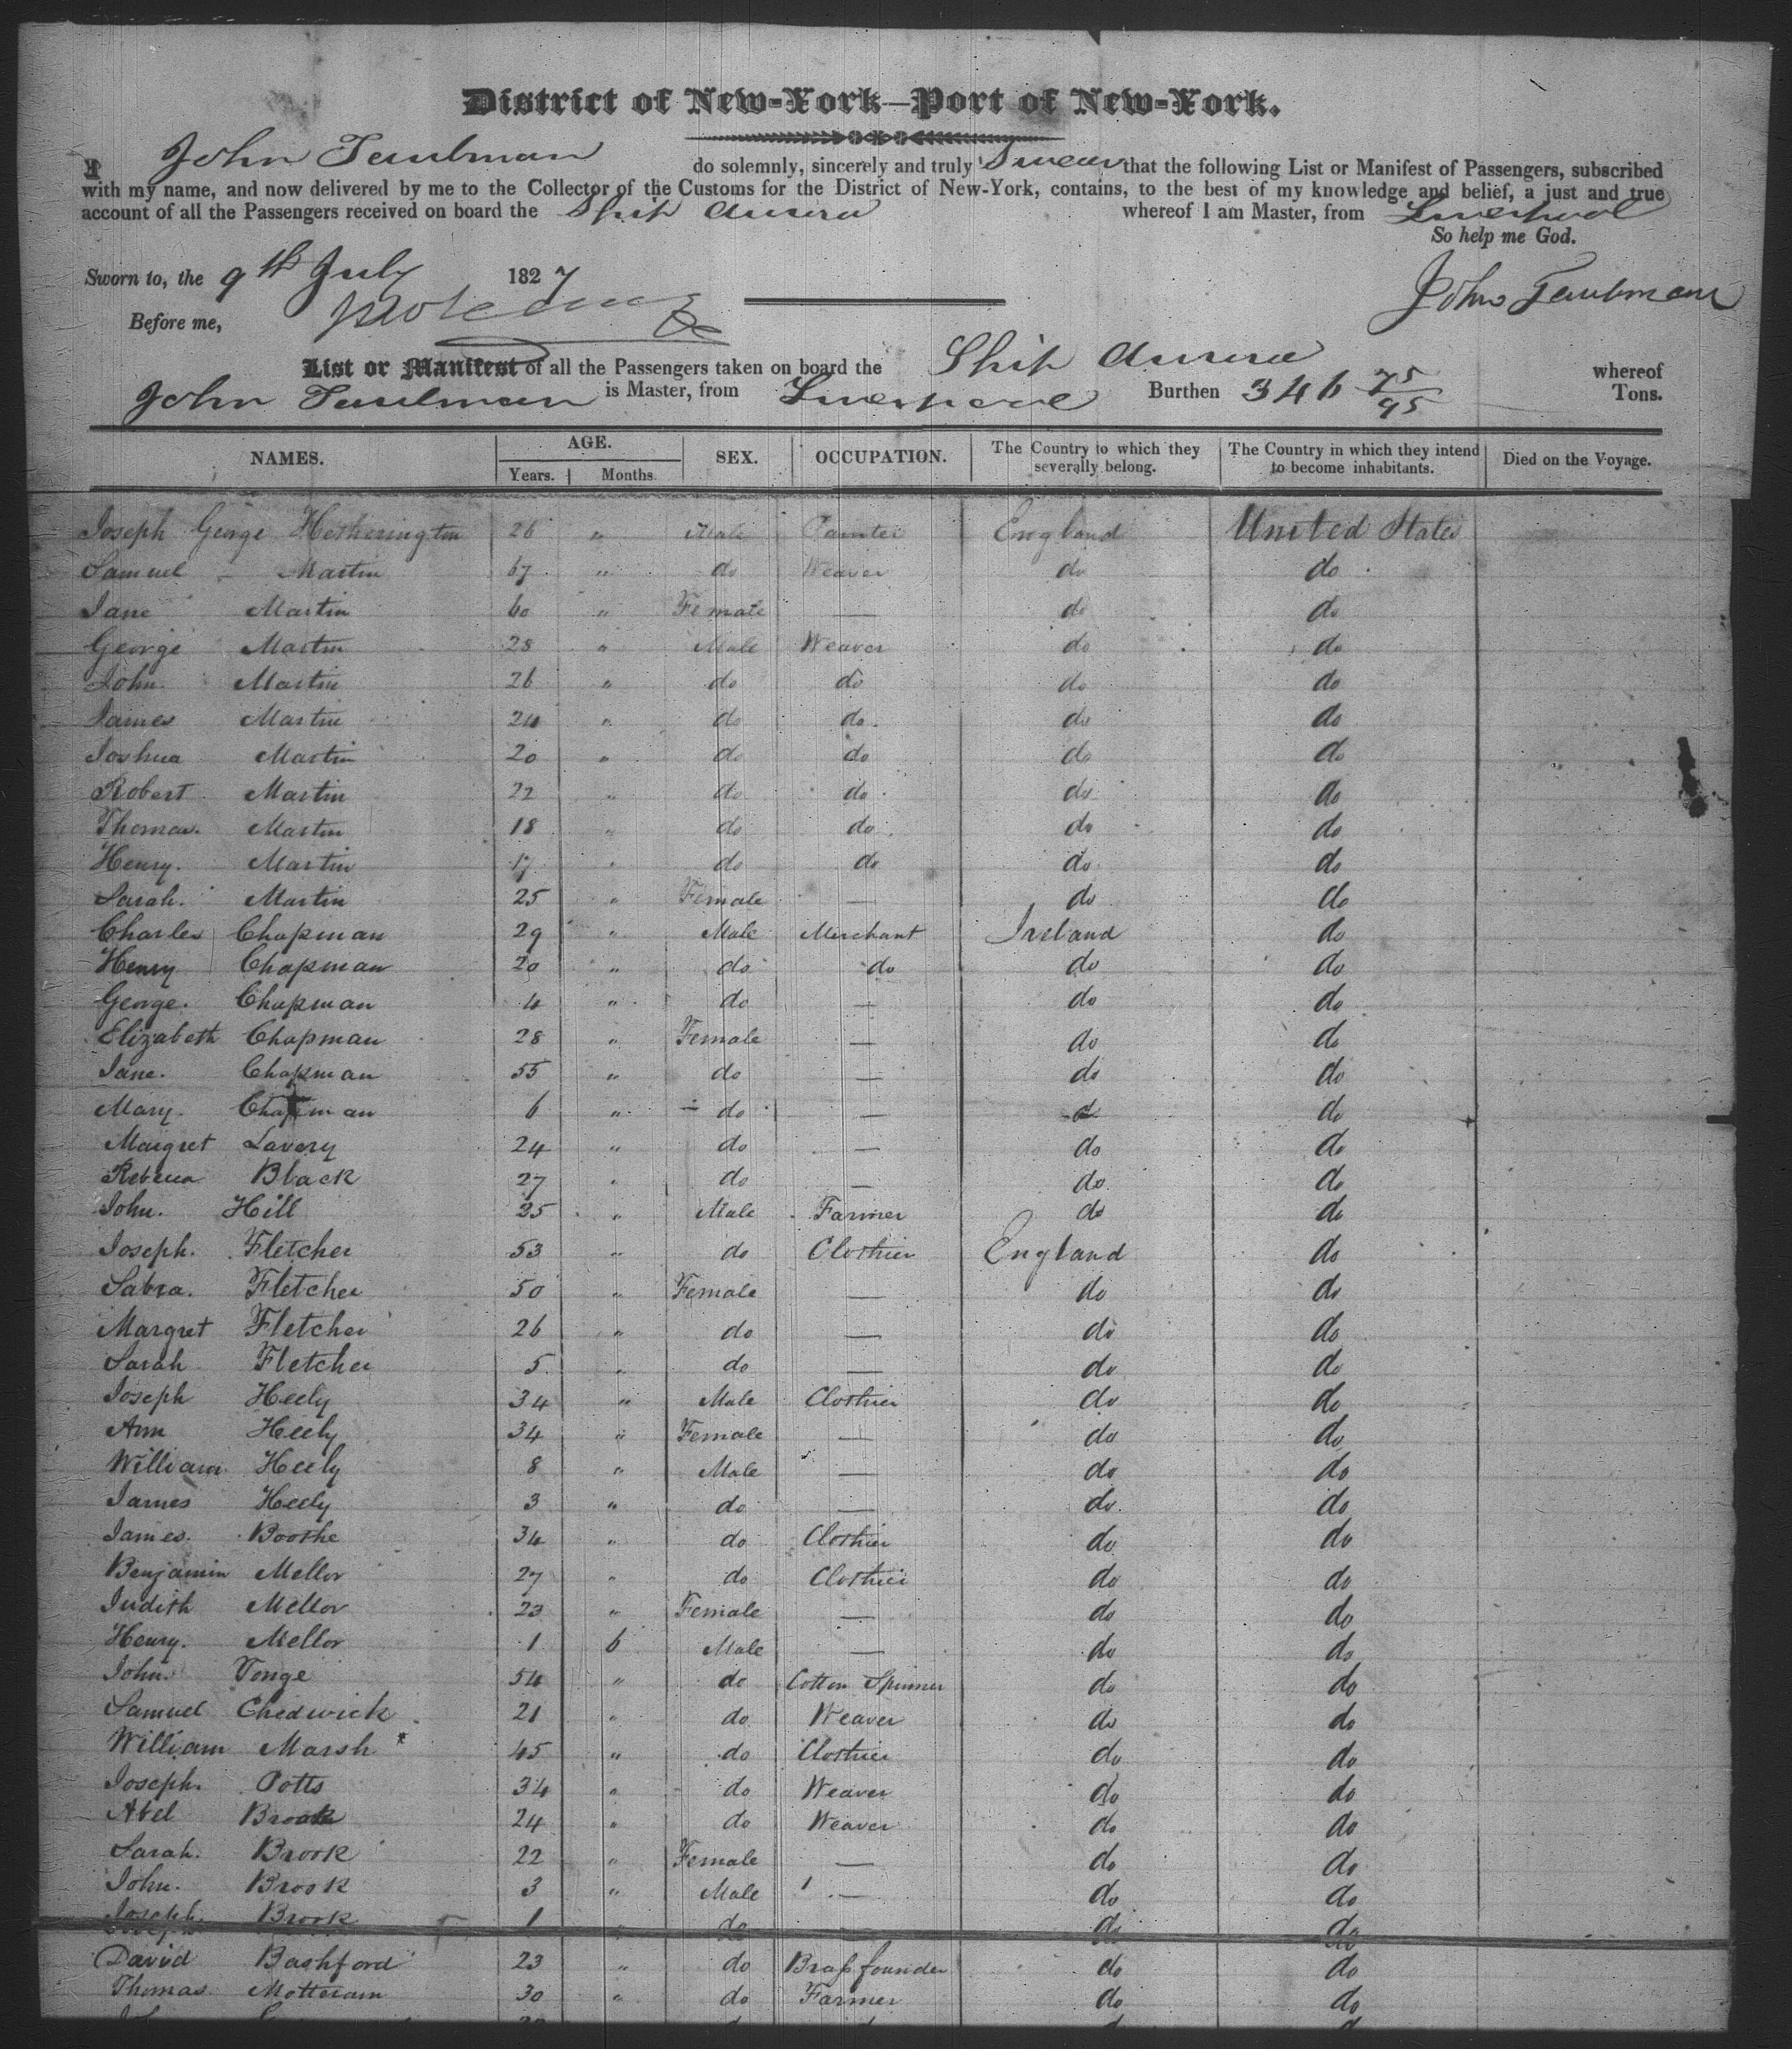 District of New-York—Port of New-York.
I John Taubman do solemnly, sincerely and truly Swear that the following List or Manifest of Passengers, subscribed
with my name, and now delivered by me to the Collector of the Customs for the District of New-York, contains, to the best of my knowledge and belief, a just and true
account of all the Passengers received on board the Ship Aurora whereof I am Master, from Liverpool
So help me God.
Sworn to, the 9th July 1827
John Taubman
Before me,
List or Manifest of all the Passengers taken on board the Ship Aurora whereof
John Taubman is Master, from Liverpool Burthen 346 75/95 Tons.
NAMES. AGE. Years. Months. SEX. OCCUPATION. The Country to which they severally belong. The Country in which they intend to become inhabitants. Died on the Voyage.
Joseph George Hetherington 26 " Male Painter England United States
Samuel Martin 67 " do Weaver do do
Jane Martin 60 " Female — do do
George Martin 28 " Male Weaver do do
John Martin 26 " do do do do
James Martin 24 " do do do do
Joshua Martin 20 " do do do do
Robert Martin 22 " do do do do
Thomas Martin 18 " do do do do
Henry Martin 17 " do do do do
Sarah Martin 25 " Female — do do
Charles Chapman 29 " Male Merchant Ireland do
Henry Chapman 20 " do do do do
George Chapman 4 " do — do do
Elizabeth Chapman 28 " Female — do do
Jane Chapman 55 " do — do do
Mary Chapman 6 " do — do do
Margret Lavery 24 " do — do do
Rebecca Black 27 " do — do do
John Hill 25 " Male Farmer do do
Joseph Fletcher 53 " do Clothier England do
Sabra Fletcher 50 " Female — do do
Margret Fletcher 26 " do — do do
Sarah Fletcher 5 " do — do do
Joseph Heely 34 " Male Clothier do do
Ann Heely 34 " Female — do do
William Heely 8 " Male — do do
James Heely 3 " do — do do
James Boothe 34 " do Clothier do do
Benjamin Mellor 27 " do Clothier do do
Judith Mellor 23 " Female — do do
Henry Mellor 1 6 Male — do do
John Tonge 54 " do Cotton Spinner do do
Samuel Chedwick 21 " do Weaver do do
William Marsh * 45 " do Clothier do do
Joseph Potts 34 " do Weaver do do
Abel Brook 24 " do Weaver do do
Sarah Brook 22 " Female — do do
John Brook 3 " Male — do do
Joseph Brook 1 " do — do do
David Bashford 23 " do Brass founder do do
Thomas Motteram 30 " do Farmer do do